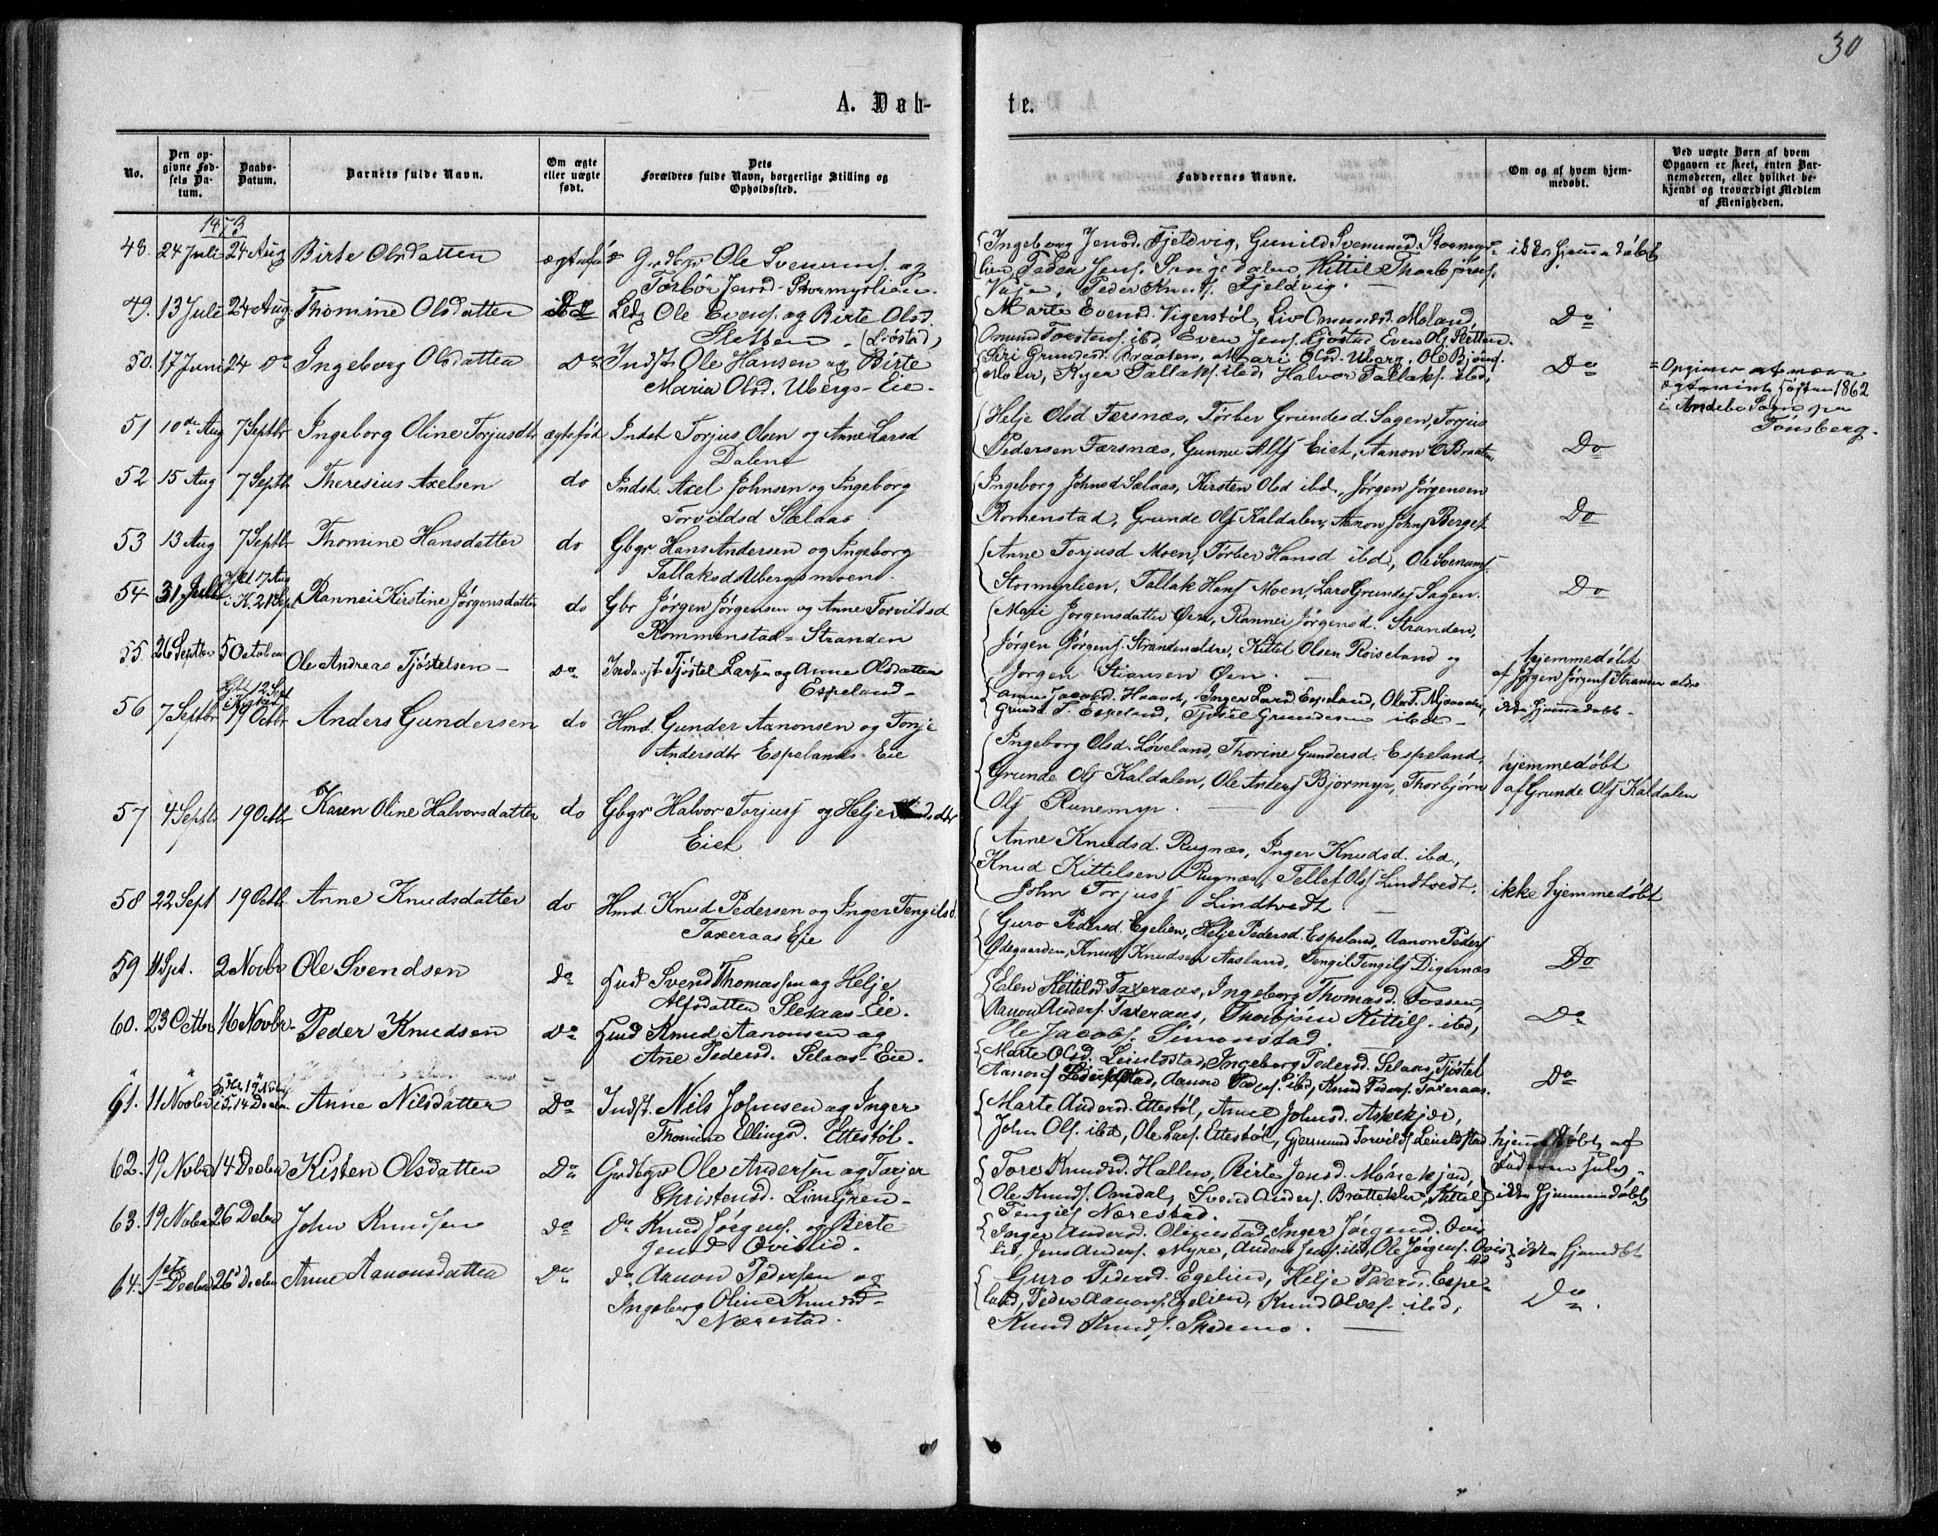 30
A. Døb-
te.
No.
Den op-
givne Fød-
sels Da-
tum.
Daabs-
Datum.
Barnets fulde Navn.
Om ægte
eller uægte
født.
Dets
Forældres fulde Navn, borgerlige Stilling og
Opholdssted.
Faddernes Navne.
Om og af hvem hjem-
medøbt.
Ved uægte Børn af hvem
Opgaven er skeet, enten Bar-
nemoderen, eller hvilket be-
kjendt og troværdigt Medlem
af Menigheden.
1873
48. 24 Juli 24 Aug Birte Olsdatter Ole Svenums. og
Torbør Jensd. Stormyrlien.
Ingeborg Jensd. Fjeldvig, Gunild Svenumsd. Stormyr-
lien, Peder Jens. Kittil Thorbjørns.
Peder Knuds. Fjeldvig.
49. 13 Juli 24 Aug. Thomine Olsdatter Ole Evens. og Birte Olsd.
Sletten
Marte Evensd. Vigerstøl, Liv Omundsd. Moland,
Omund ibd, Even Jens. Even Ols. Sletten.
Do
50. 17 Juni 24 Do Ingeborg Olsdatter Do Indst. Ole Hansen og Birte
Maria Olsd. Ubergs-Eie.
Siri Grundesd. Braaten, Mari Olsd. Uberg, Ole Bjørns.
Moen, Tallaks. ibd, Halvor Tallaks. ibd,
Do
1862
i Andebo Sogn
Tønsberg.
51 10de Aug 7 Septbr Ingeborg Oline Torjusdtr ægtefød Indst Torjus Olsen og Anne Larsd
Dalene
Helje Olsd Færsnæs, Tørber Grundesd. Sagen, Torjus
Pedersen Færsnæs, Gunne Alfs Eiet, Aanon O Braaten
Do
52 15 Aug 7 Septbr Theresius Axelsen do Indst. Axel Johnsen og Ingeborg
Torvildsd Selaas
Ingeborg Johnsd Selaas, Kirsten Olsd ibd, Jørgen Jørgensen
Romenstad, Grunde Ols Kaldalen, Aanon Johns Berget
Do
53 13 Aug 7 Septbr Thomine Hansdatter do Gbgr Hans Andersen og Ingeborg
Tallaksd Ubergsmoen.
Anne Torjusd Moen, Tørber Hansd ibd, Ole Svenums.
Stormyrlien, Tallak Hans Moen, Lars Grundes Sagen.
Do
54 31 Juli Hjd. 17 Aug
i K. 21 Sept Rannei Kirstine Jørgensdatter do Gbr Jørgen Jørgensen og Anne Torvildsd
Rommenstad-Stranden
Mari Jørgensdatter Øen, Rannei Jørgensd. Stranden,
Jørgen Jørgens. Stranden ældre, Kittel Olsen Røiseland og
Jørgen Stiansen Øen.
hjemmedøbt
af Jørgen Jørgens Stranden ældre
55. 26 Septbr 5 October Ole Andreas Tjøstelsen Do. Indst Tjøstel Larsen og Anne Olsdatter
Espeland
Anne Jacobsd. Inger Larsd Espeland,
Grunde T. Espeland, Tjøstel Grundesen ibd
ikke hjemmedøbt.
56 7 Septbr 19 Octbr Anders Gundersen do Hmd. Gunder Aanonsen og Tonje
Andersdtr Espelands-Eie
Ingeborg Olsd. Løveland, Thorine Gundersd. Espeland,
Grunde Ols Kaldalen, Ole Anders Bjørmyr, Thorbjørn
Ols Runemyr.
hjemmedøbt
af Grunde Ols Kaldalen
57 4 Septbr 19 Octbr Karen Oline Halvorsdatter do Gbgr Halvor Torjuss og Helje
Eiet
Anne Knudsd. Rugnæs, Inger Knudsd. ibd,
Knud Kittelsen Rugnæs, Tellef Ols Lindtvedt,
John Torjuss Lindtvedt.
ikke hjemmedøbt
58 22 Sept 19 Octbr Anne Knudsdatter do Hmd. Knud Pedersen og Inger Tengilsd
Taxeraas Eie
Guro Pedersd. Egelien, Helje Pedersd. Espeland, Aanon Peders
Ødegaarden, Knud Knudsen Aasland, Tengil Tengils Digernæs
Do
59 Spt. 2 Novbr Ole Svendsen Do Svend Thomassen og Helje
Alfsdatter Selaas-Eie.
Elen Kittilsd Taxeraas, Ingeborg Thomasd. Fossen,
Aanon Anders. Taxeraas, Thorbjørn Kittils. ibd,
Ole Jacobs. Simonstad.
Do
60. 23 Octbr. 16 Novbr. Peder Knudsen Do Knud Aanonsen og
Ane Pedersd. Selaas-Eie.
Marte Olsd. Ingeborg Pedersd. Selaas, Tjøstel
Aanons Aanon Peders. ibd, Knud Peders. Taxeraas.
Do
61. 11 Novbr 14 Decbr Anne Nilsdatter Do Indst. Nils Johnsen og Inger
Thomine Ellingsd. Ettestøl.
Marte Andersd. Ettestøl, Anne Johnsd. Askekjær,
John Ols. ibd, Ole Lars. Ettestøl, Gjermund Torvilds
62. 19 Novbr 14 Decbr Kisten Olsdatter Do Grdbgr Ole Andersen og Tarjer
Christensd. Limyren
Tore Knudsd. Hallen, Birte Jensd.
Ole Knuds. Omdal, Svend Anders. Brattekler, Kittel
Tengils Nærestad.
ikke hjemmedøbt
63. 19 Novbr 26 Decbr John Knudsen Do Do Knud Jørgens. og Birte
Jensd Ovislid.
Inger Andersd. Inger Jørgensd. Ovis-
lid, Jens Anders. Myre, Anders Jens. ibd, Ole Jørgens. Ovis
lid
64. 1ste Decbr 26de Decbr Anne Aanonsdatter Do Do Aanon Pedersen og
Ingeborg Oline Knudsd-
Nærestad.
Guro Pedersd. Egelien, Helje Pedersd. Espe-
land, Peder Aanons. Egelien, Knud Olves. ibd,
Knud Knuds. Skedemo.
Do.